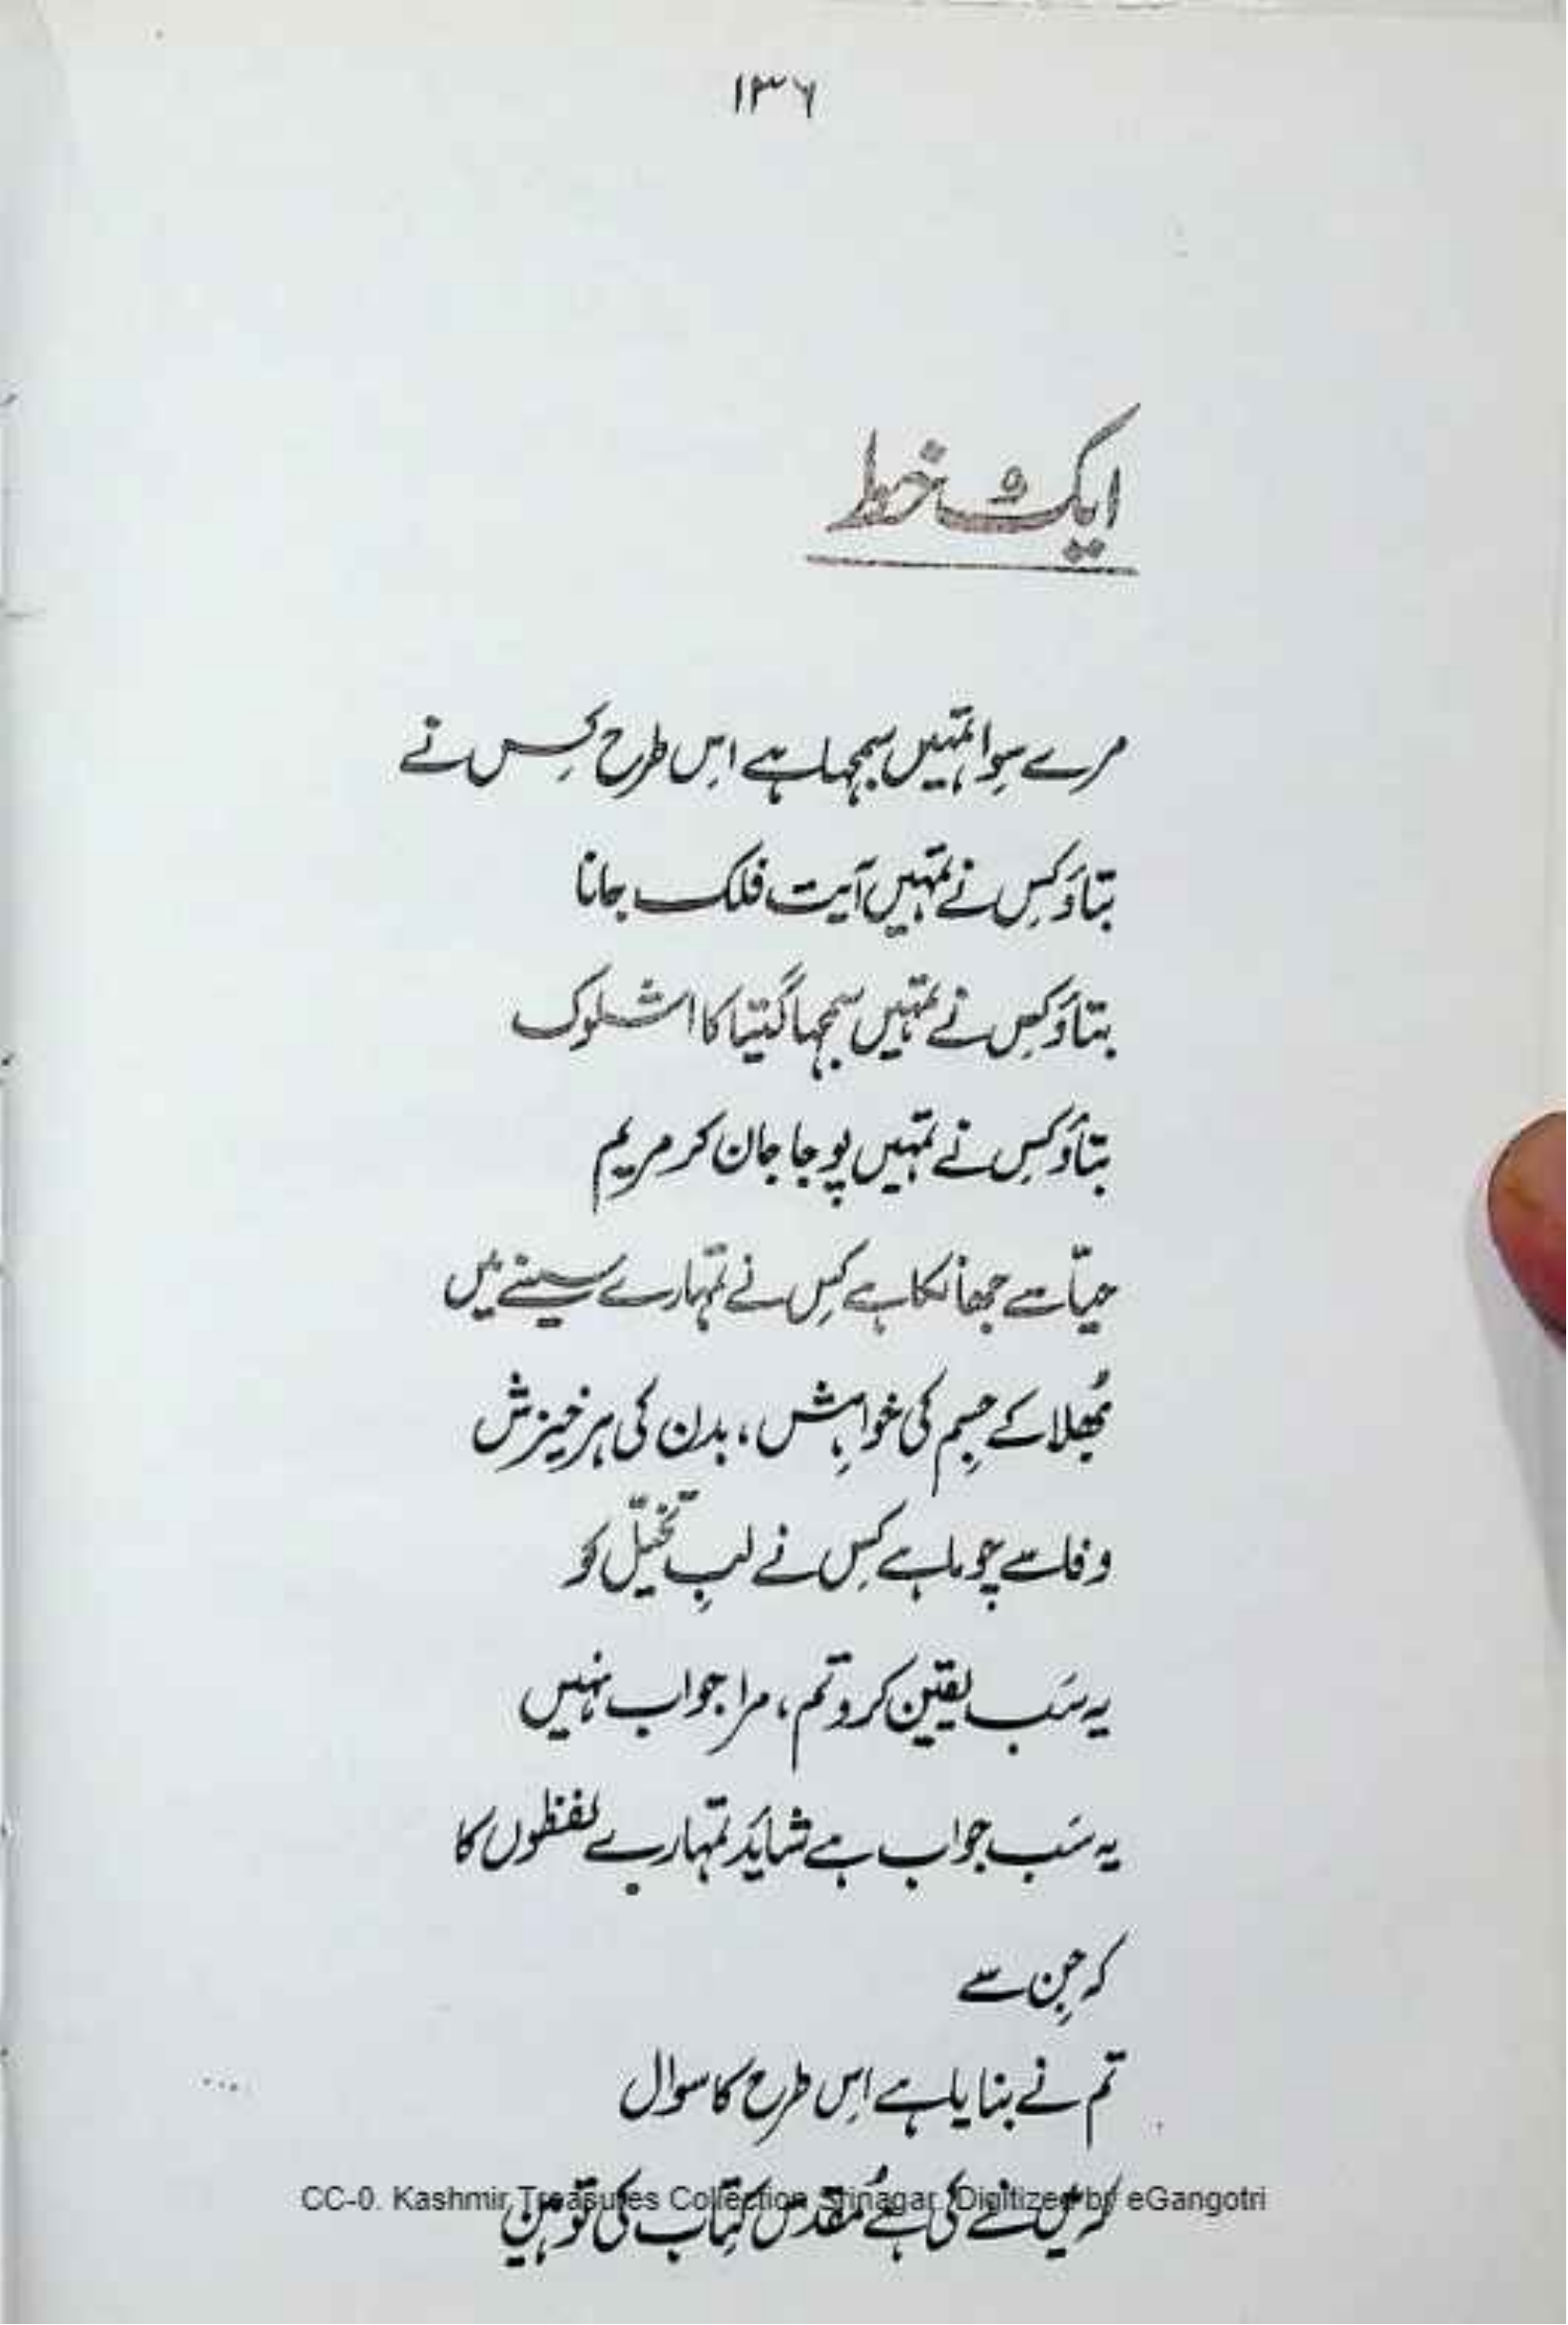 ۱۳۶
ایک خط
مرے سِوا تمہیں سمجھا ہے اِس طرح کِس نے
بتاؤ کِس نے تمہیں آیت فلک جانا
بتاؤ کِس نے تمہیں سمجھا گیتا کا اشلوک
بتاؤ کِس نے تمہیں پوجا جان کر مریم
حیّا سے جھانکا ہے کِس نے تمہارے سینے میں
بھُلا کے جِسم کی خواہِش، بدن کی ہر خیزش
وفا سے چوما ہے کِس نے لبِ تخیّل کو
یہ سَب یقین کرو تم، مرا جواب نہیں
یہ سَب جواب ہے شائد تمہارے لفظوں کا
کہ جِن سے
تم نے بنایا ہے اِس طرح کا سوال
کہ میں نے کی ہے مُقدس کِتاب کی توہین
CC-0. Kashmir Treasures Collection Srinagar. Digitized by eGangotri